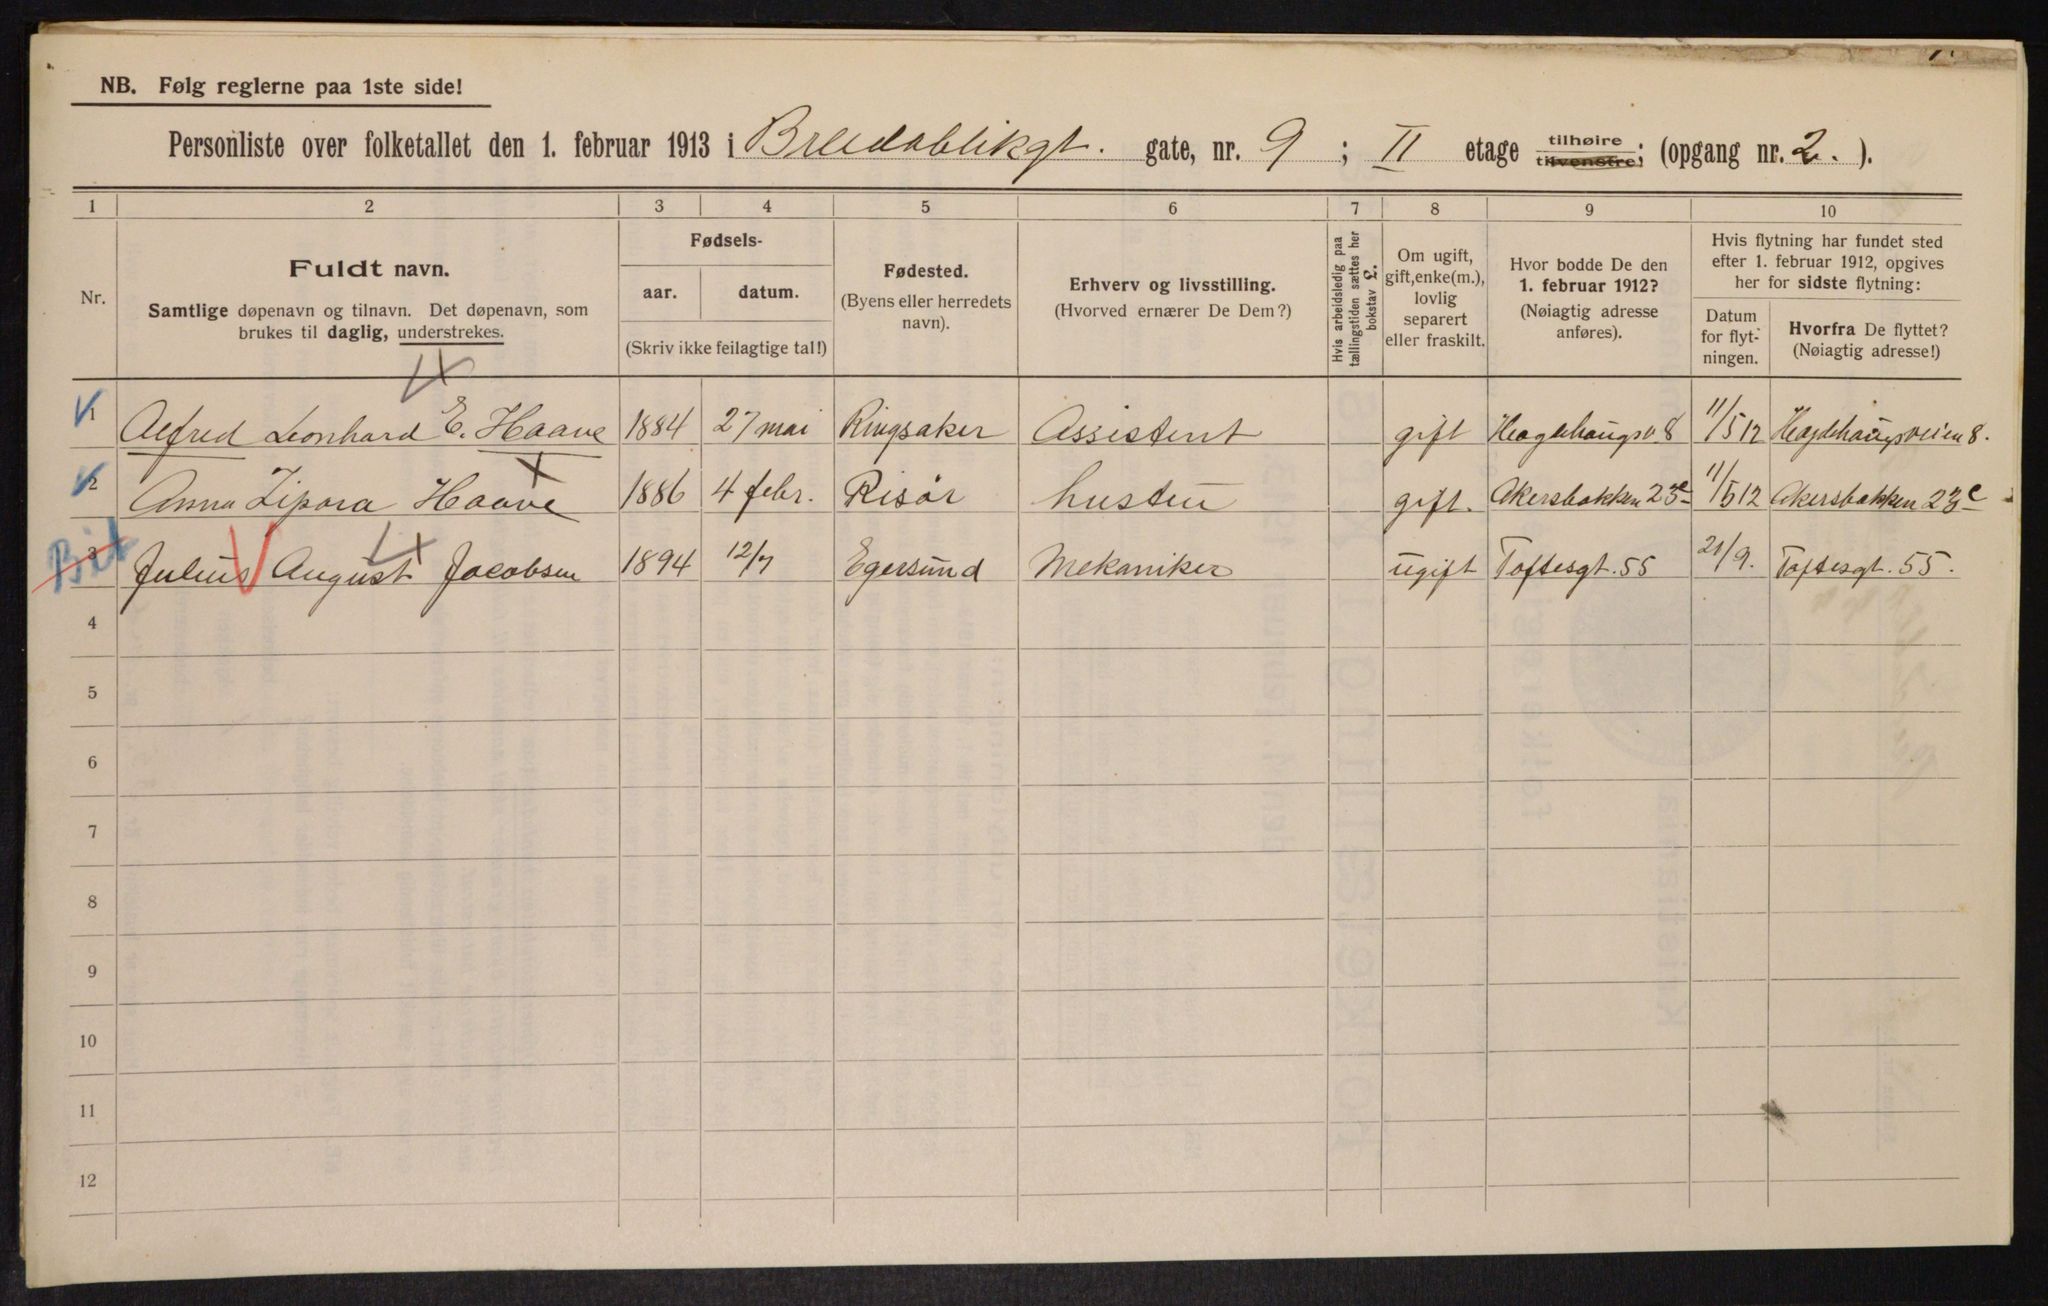 NB. Følg reglerne paa 1ste side!
Personliste over folketallet den 1. februar 1913 i Breidablikgt. gate, nr. 9 ; II etage tilhøire tilvenstre; (opgang nr. 2. ).
1 2 3 4 5 6 7 8 9 10
Nr.
Fuldt navn.
Samtlige døpenavn og tilnavn. Det døpenavn, som
brukes til daglig, understrekes.
Fødsels-
aar. datum.
(Skriv ikke feilagtige tal!)
Fødested.
(Byens eller herredets
navn).
Erhverv og livsstilling.
(Hvorved ernærer De Dem?)
Hvis arbeidsledig paa
tællingstiden sættes her
bokstav L.
Om ugift,
gift, enke(m.),
lovlig
separert
eller fraskilt.
Hvor bodde De den
1. februar 1912?
(Nøiagtig adresse
anføres).
Hvis flytning har fundet sted
efter 1. februar 1912, opgives
her for sidste flytning:
Datum
for flyt-
ningen.
Hvorfra De flyttet?
(Nøiagtig adresse!)
1 Alfred Leonhard E. Haave 1884 27 mai Ringsaker Assistent gift Hegdehaugsv. 8 11/5 12 Hegdehaugsveien 8.
2 Anna Zipora Haave 1886 4 febr. Risör hustru gift. Akersbakken 23e 11/5 12 Akersbakken 23e
Bit
3 Julius August Jacobsen 1894 12/7 Egersund Mekaniker ugift Toftesgt. 55 21/9. Toftesgt. 55.
4
5
6
7
8
9
10
11
12